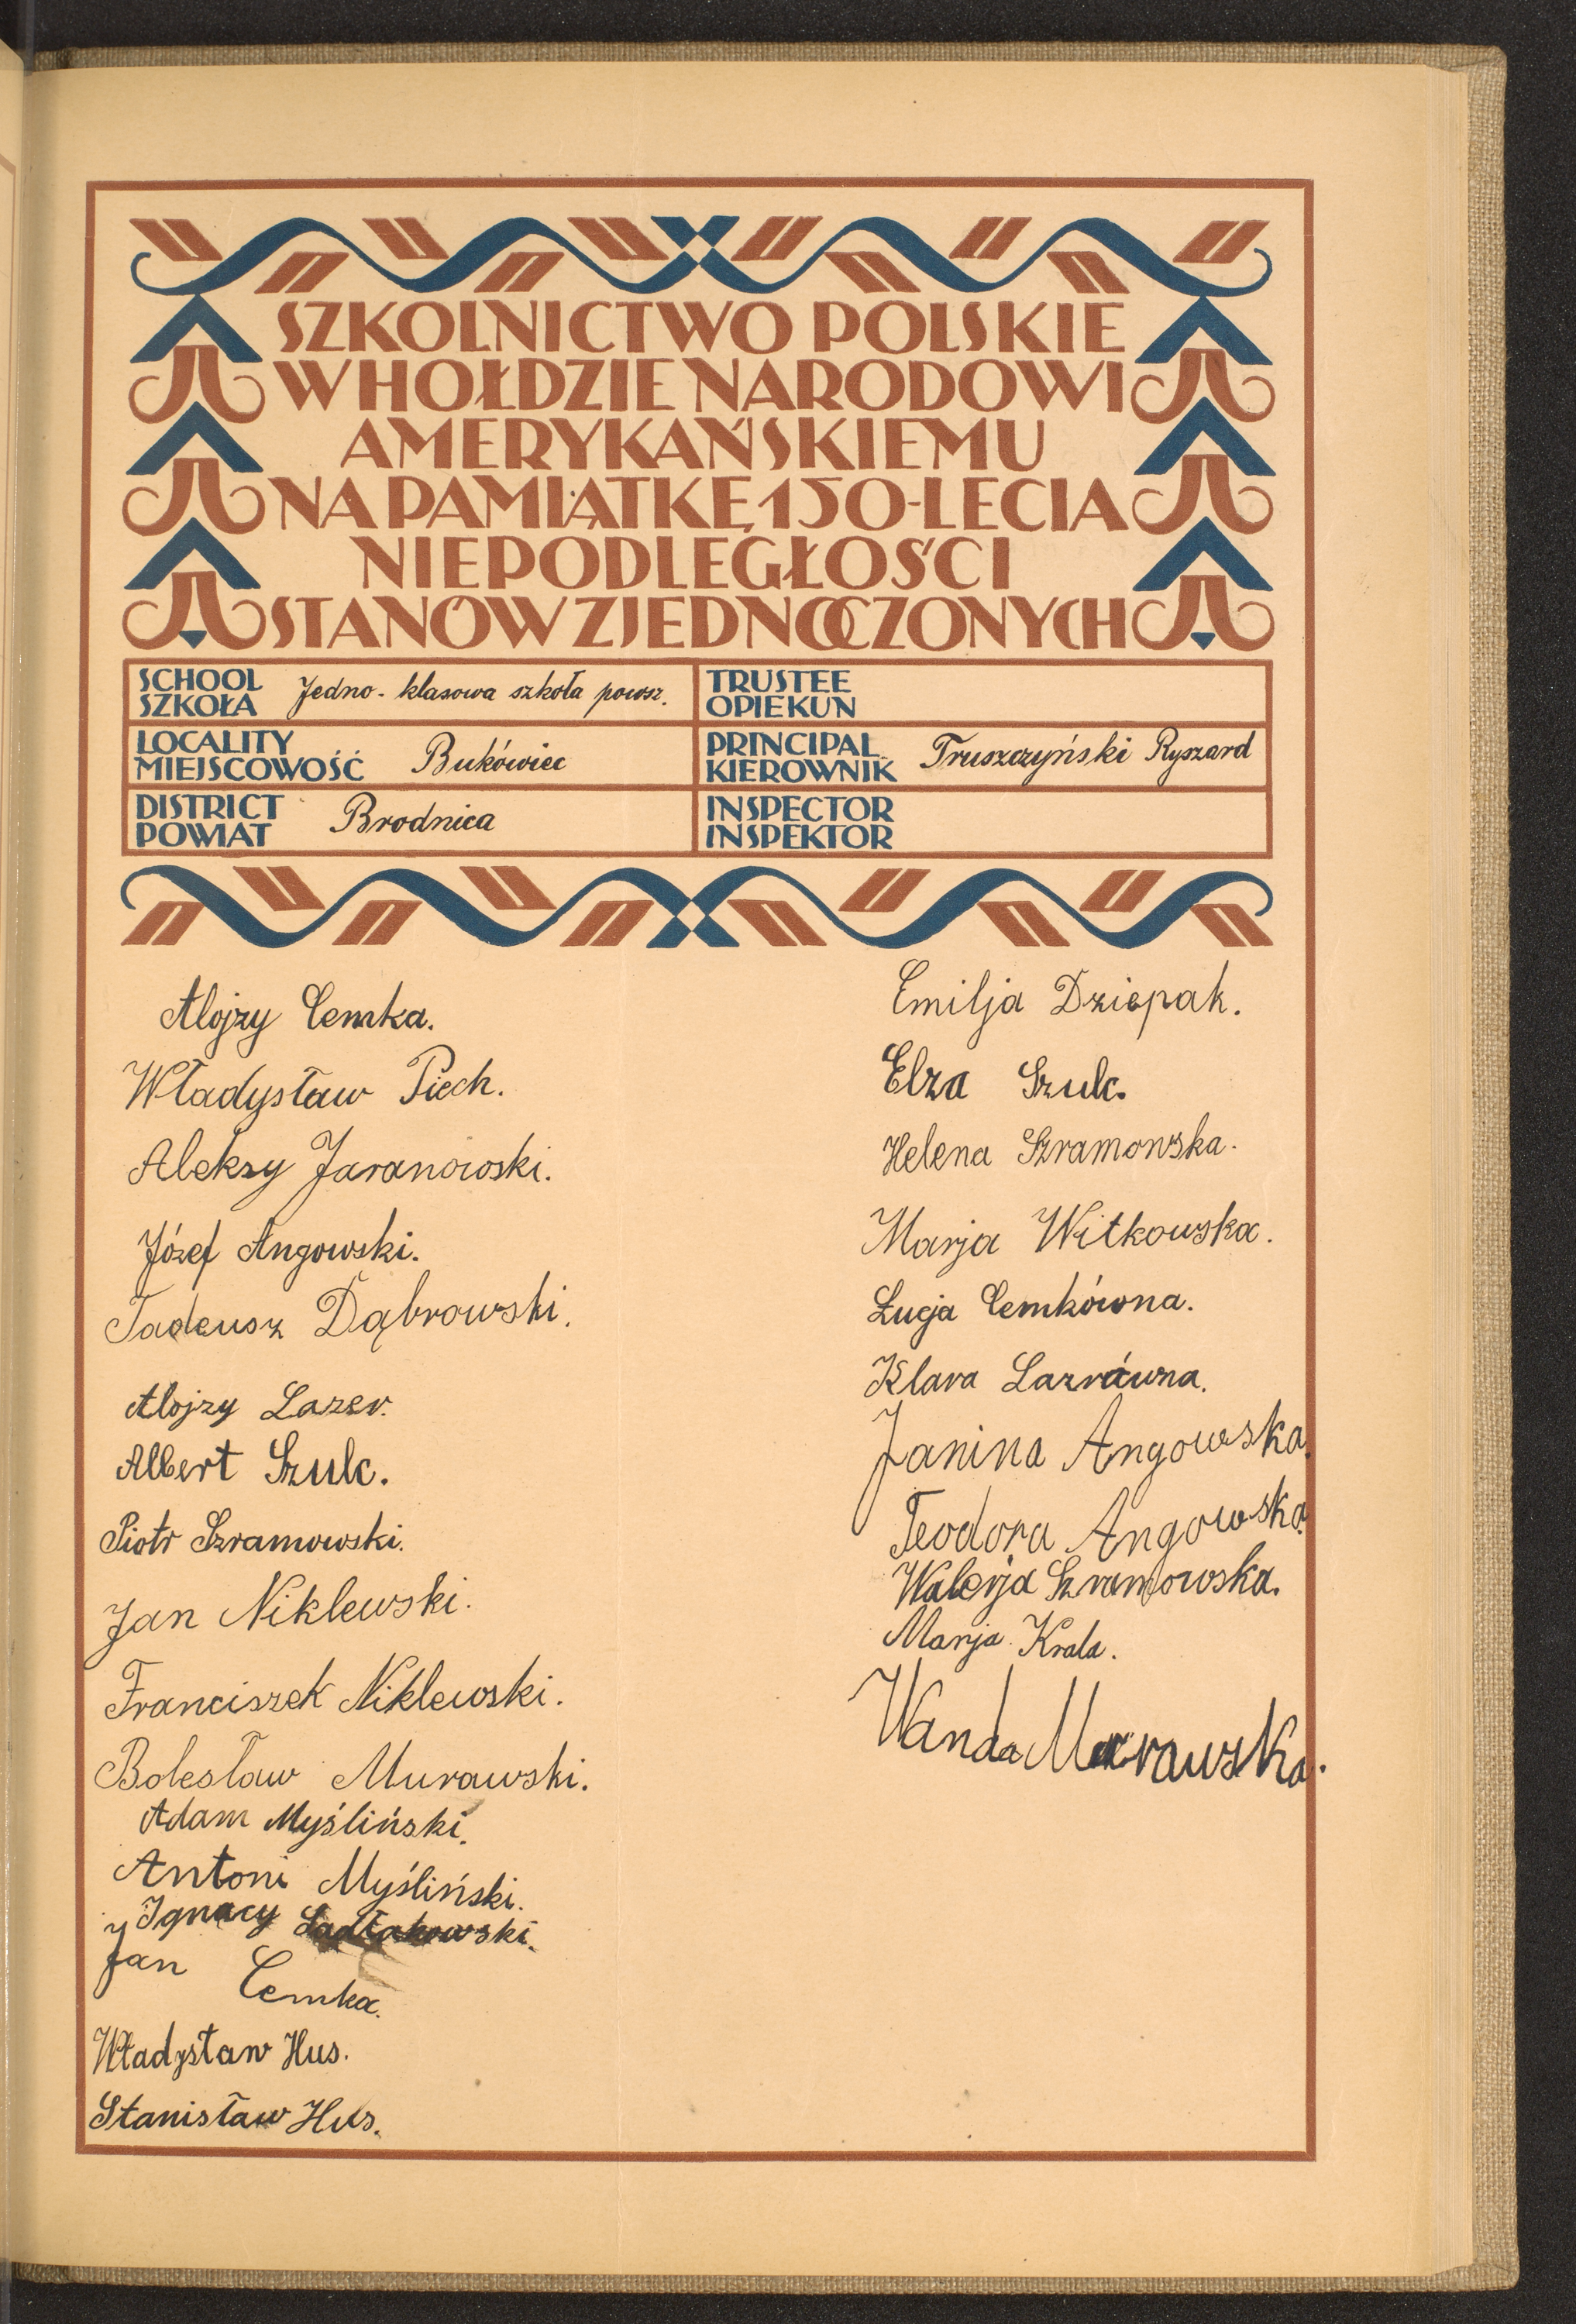 SZKOLNICTWO POLSKIE
W HOŁDZIE NARODOWI
AMERYKAŃSKIEMU
NA PAMIĄTKĘ 150-LECIA
NIEPODLEGŁOŚCI
STANÓW ZJEDNOCZONYCH
SCHOOL
SZKOŁA Jedno-klasowa szkoła powsz.
TRUSTEE
OPIEKUN
LOCALITY
MIEJSCOWOŚĆ Bukówiec
PRINCIPAL
KIEROWNIK Truszczyński Ryszard
DISTRICT
POWIAT Brodnica
INSPECTOR
INSPEKTOR
Alojzy Cemka.
Władysław Piech.
Aleksy Jaranowski.
Józef Angowski.
Tadeusz Dąbrowski.
Alojzy Lazer.
Albert Szulc.
Piotr Szramowski.
Jan Niklewski.
Franciszek Niklewski.
Bolesław Murawski.
Adam Myśliński.
Antoni Myśliński.
Ignacy
Jan Cemka.
Władysław Hus.
Stanisław Hus.
Emilja Dziepak.
Elza Szulc.
Helena Szramowska.
Marja Witkowska.
Łucja Cemkówna.
Klara Lazrówna.
Janina Angowska.
Teodora Angowska.
Walerja Szramowska.
Marja Krala.
Wanda